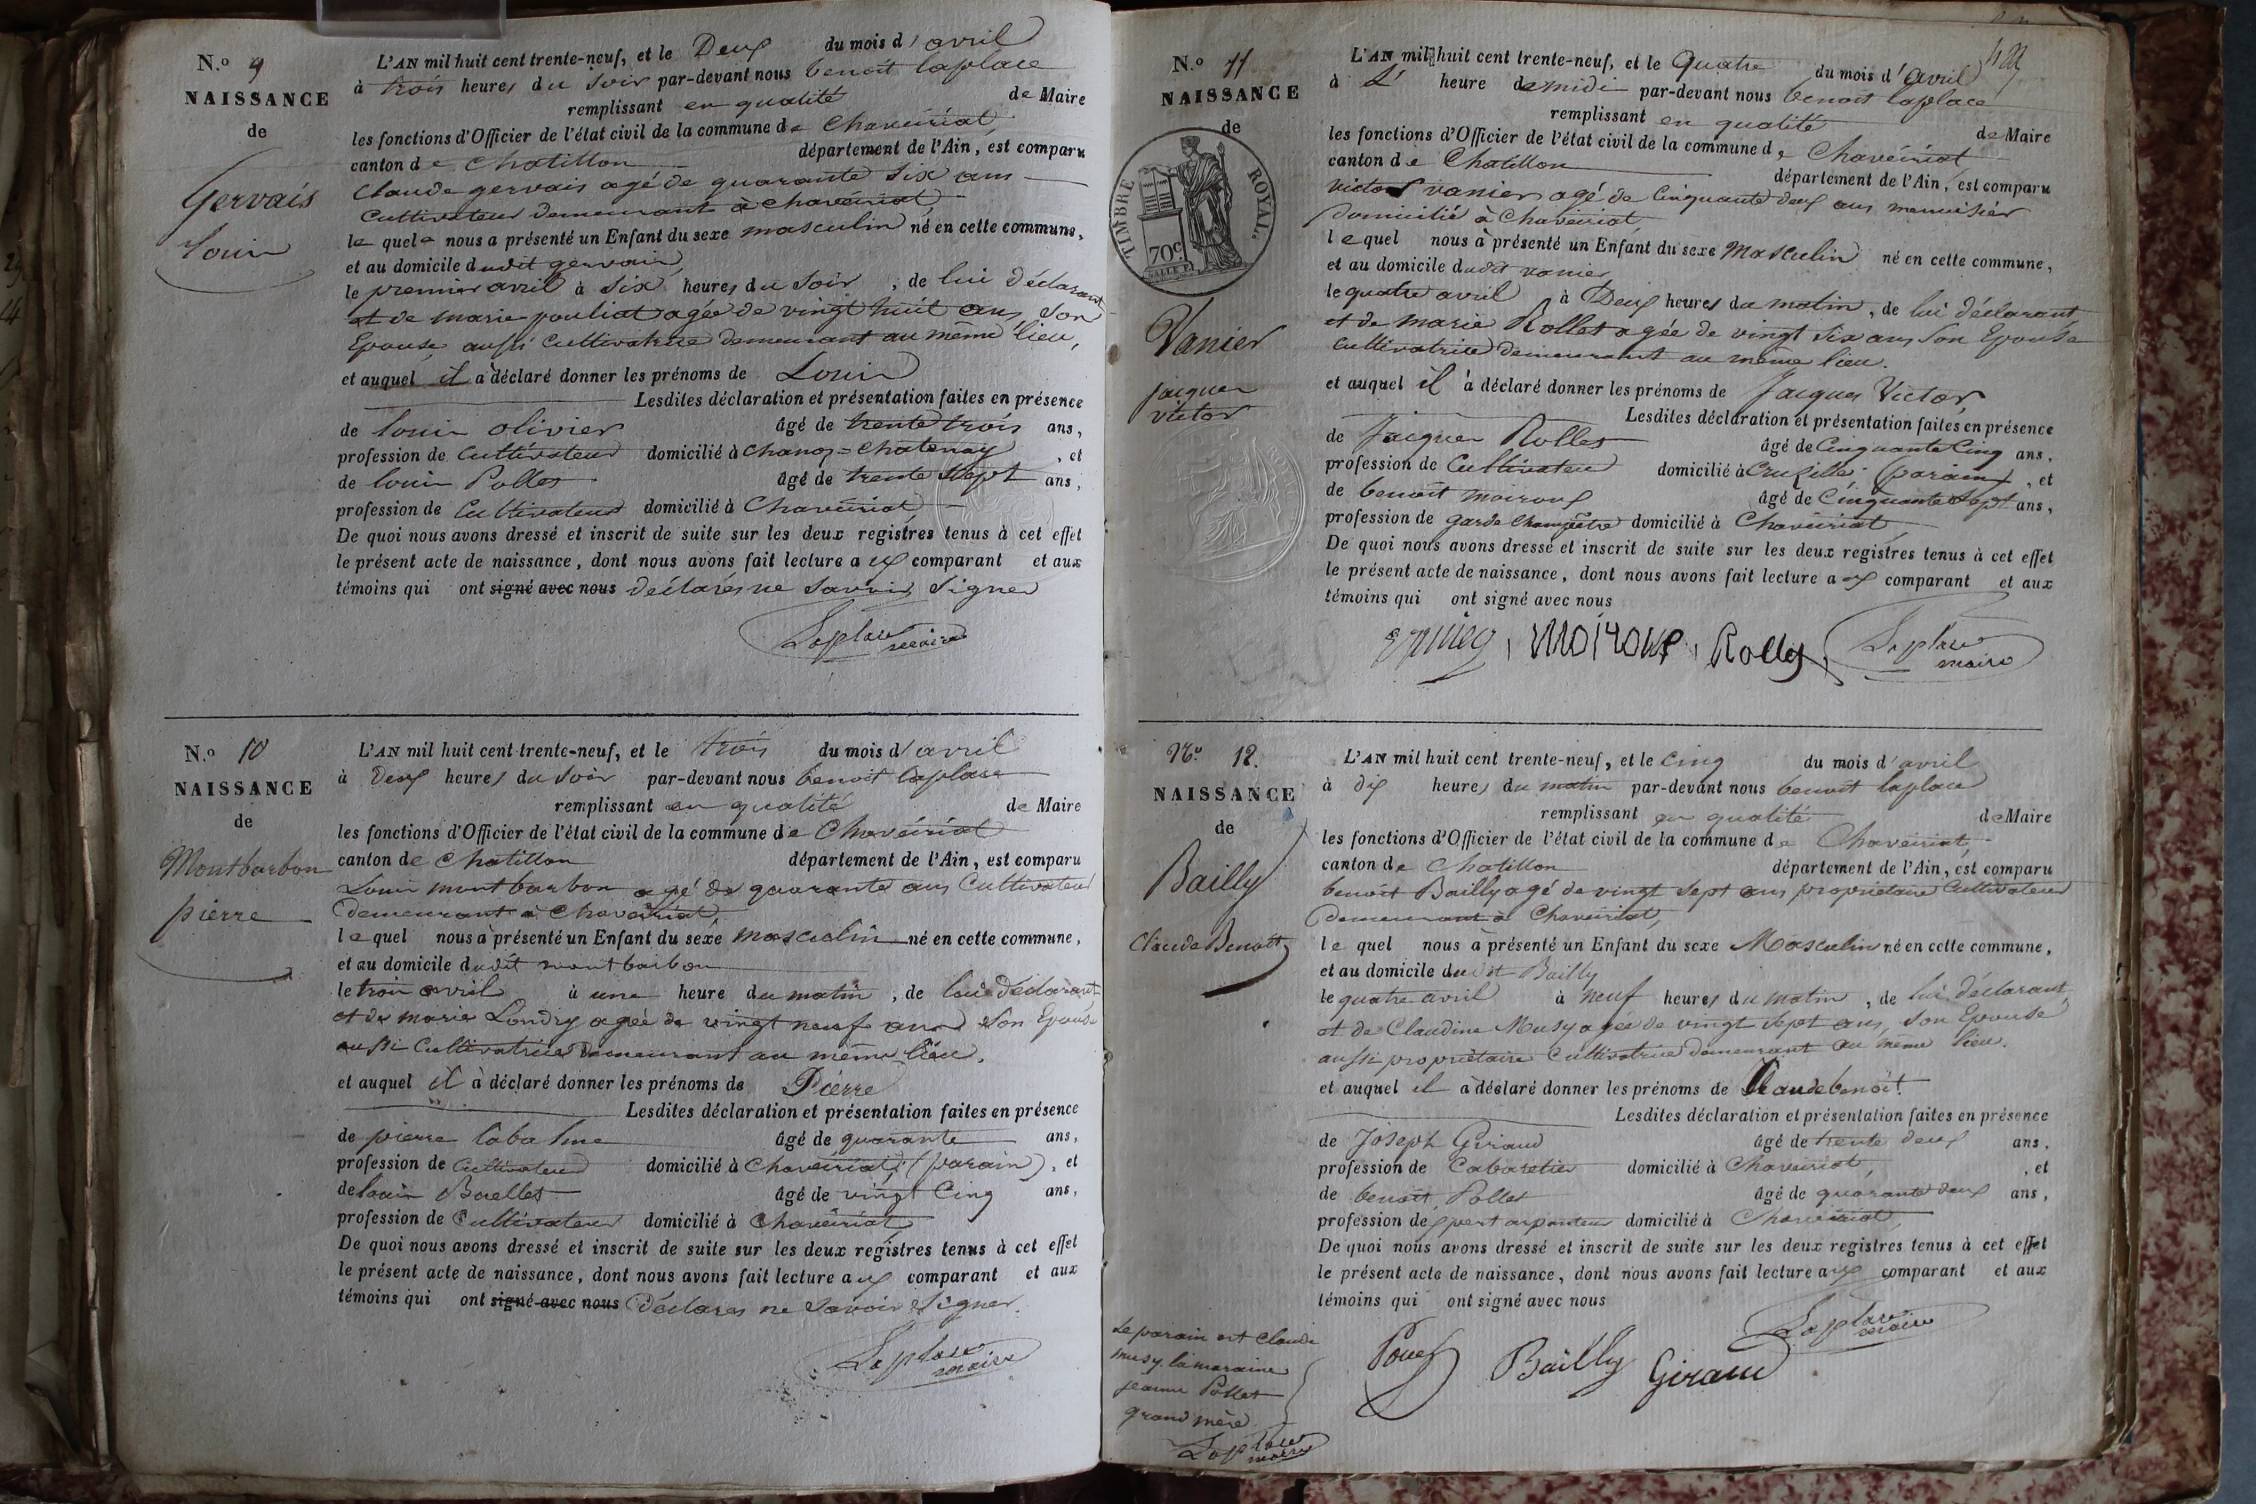 N.o 9
NAISSANCE
de
Gervais
Louis
L'AN mil huit cent trente-neuf, et le Deux du mois d'avril
à trois heures du soir par-devant nous benoit laplace
remplissant en qualité de Maire
les fonctions d'Officier de l'état civil de la commune de Chaveiriat,
canton de Chatillon département de l'Ain, est comparu
Claude gervais agé de quarante six ans
Cultivateur demeurant à Chaveiriat,
lequel nous a présenté un Enfant du sexe masculin né en cette commune,
et au domicile dudit gervais,
le premier avril à six heures du soir, de lui déclarant
et de marie pouliat agée de vingt huit ans, son
Epouse, aussi Cultivatrice demeurant au même lieu,
et auquel il a déclaré donner les prénoms de Louis
Lesdites déclaration et présentation faites en présence
de louis olivier âgé de trente trois ans,
profession de Cultivateur domicilié à Chanoz=Chatenay, et
de louis Pollet âgé de trente sept ans,
profession de Cultivateur domicilié à Chaveiriat,
De quoi nous avons dressé et inscrit de suite sur les deux registres tenus à cet effet
le présent acte de naissance, dont nous avons fait lecture aux comparant et aux
témoins qui ont signé avec nous déclarés ne savoir signer
Laplace
maire
N.o 10
NAISSANCE
de
Montbarbon
pierre
L'AN mil huit cent trente-neuf, et le trois du mois d'avril
à Deux heures du soir par-devant nous benoit laplace
remplissant en qualité de Maire
les fonctions d'Officier de l'état civil de la commune de Chaveiriat
canton de Chatillon département de l'Ain, est comparu
Louis montbarbon agé de quarante ans Cultivateur
demeurant à Chaveiriat,
lequel nous a présenté un Enfant du sexe masculin né en cette commune,
et au domicile dudit montbarbon
le trois avril à une heure du matin, de lui Déclarant
et de marie Londry agée de vingt neuf ans son Epouse
aussi Cultivatrice demeurant au même lieu.
et auquel il a déclaré donner les prénoms de Pierre
Lesdites déclaration et présentation faites en présence
de pierre labalme âgé de quarante ans,
profession de Cultivateur domicilié à Chaveiriat, (parain), et
de louis Buellet âgé de vingt Cinq ans,
profession de Cultivateur domicilié à Chaveiriat,
De quoi nous avons dressé et inscrit de suite sur les deux registres tenus à cet effet
le présent acte de naissance, dont nous avons fait lecture aux comparant et aux
témoins qui ont signé avec nous déclarés ne savoir signer.
Laplace
maire
N.o 11
NAISSANCE
de
TIMBRE ROYAL.
70c.
Vanier
jacques
victor
L'AN mil huit cent trente-neuf, et le Quatre du mois d'avril
à L' heure de midi par-devant nous benoit laplace
remplissant en qualité de Maire
les fonctions d'Officier de l'état civil de la commune de Chaveiriat
canton de Chatillon département de l'Ain, est comparu
victor vanier agé de Cinquante deux ans menuisier
domicilié à Chaveiriat,
lequel nous a présenté un Enfant du sexe Masculin né en cette commune,
et au domicile dudit vanier,
le quatre avril à Deux heures du matin, de lui déclarant,
et de marie Rollet agée de vingt six ans son Epouse
Cultivatrice demeurant au même lieu.
et auquel il a déclaré donner les prénoms de Jacques Victor,
Lesdites déclaration et présentation faites en présence
de Jacques Rollet âgé de Cinquante Cinq ans,
profession de Cultivateur domicilié à Cruzille (parain), et
de benoit moiroux âgé de Cinquante Sept ans,
profession de garde Champêtre domicilié à Chaveiriat,
De quoi nous avons dressé et inscrit de suite sur les deux registres tenus à cet effet
le présent acte de naissance, dont nous avons fait lecture aux comparant et aux
témoins qui ont signé avec nous
Moiroux, Laplace
maire
N.o 12.
NAISSANCE
de
Bailly
Claude Benoit
L'AN mil huit cent trente-neuf, et le Cinq du mois d'avril
à dix heures du matin par-devant nous benoit laplace
remplissant en qualité de Maire
les fonctions d'Officier de l'état civil de la commune de Chaveiriat,
canton de Chatillon département de l'Ain, est comparu
benoit Bailly agé de vingt sept ans propriétaire Cultivateur
demeurant à Chaveiriat,
lequel nous a présenté un Enfant du sexe Masculin né en cette commune,
et au domicile dudit Bailly
le quatre avril à neuf heures du matin, de lui déclarant,
et de Claudine Musy agée de vingt sept ans, son Epouse
aussi propriétaire Cultivatrice demeurant au même lieu.
et auquel il a déclaré donner les prénoms de Claude benoit.
Lesdites déclaration et présentation faites en présence
de Joseph Giraud âgé de trente deux ans,
profession de Cabaretier domicilié à Chaveiriat, et
de benoit Pollet âgé de quarante deux ans,
profession d'expert arpenteur domicilié à Chaveiriat,
De quoi nous avons dressé et inscrit de suite sur les deux registres tenus à cet effet
le présent acte de naissance, dont nous avons fait lecture aux comparant et aux
témoins qui ont signé avec nous
Laplace
maire
Bailly Giraud
Le parain est Claude
musy. la maraine
jeanne Pollet
grand mère
Laplace
maire